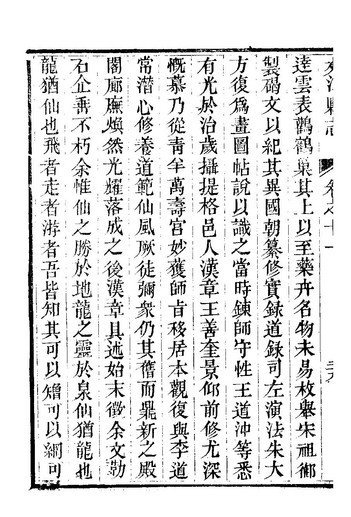 逹雲表鸛鶴巢其上以至藥卉名物未易枚舉宋祖御
製碣文以紀其異國朝纂修實錄道錄司左演法朱大
方復爲畫圖帖說以識之當時鍊師守性王道沖等悉
有光於治歲攝提格邑人漢章王善奎景仰前修尤深
慨慕乃從青羊萬壽宮妙獲師㫖移居本觀復與李道
常潛心修養道範仙風厥徒彌衆仍其舊而鼎新之殿
閣廊廡煥然光燿落成之後漢章具述始末徵余文勒
石企垂不朽余惟仙之勝於地龍之靈於泉仙猶龍也
龍猶仙也飛者走者游者吾皆知其可以矰可以綱可